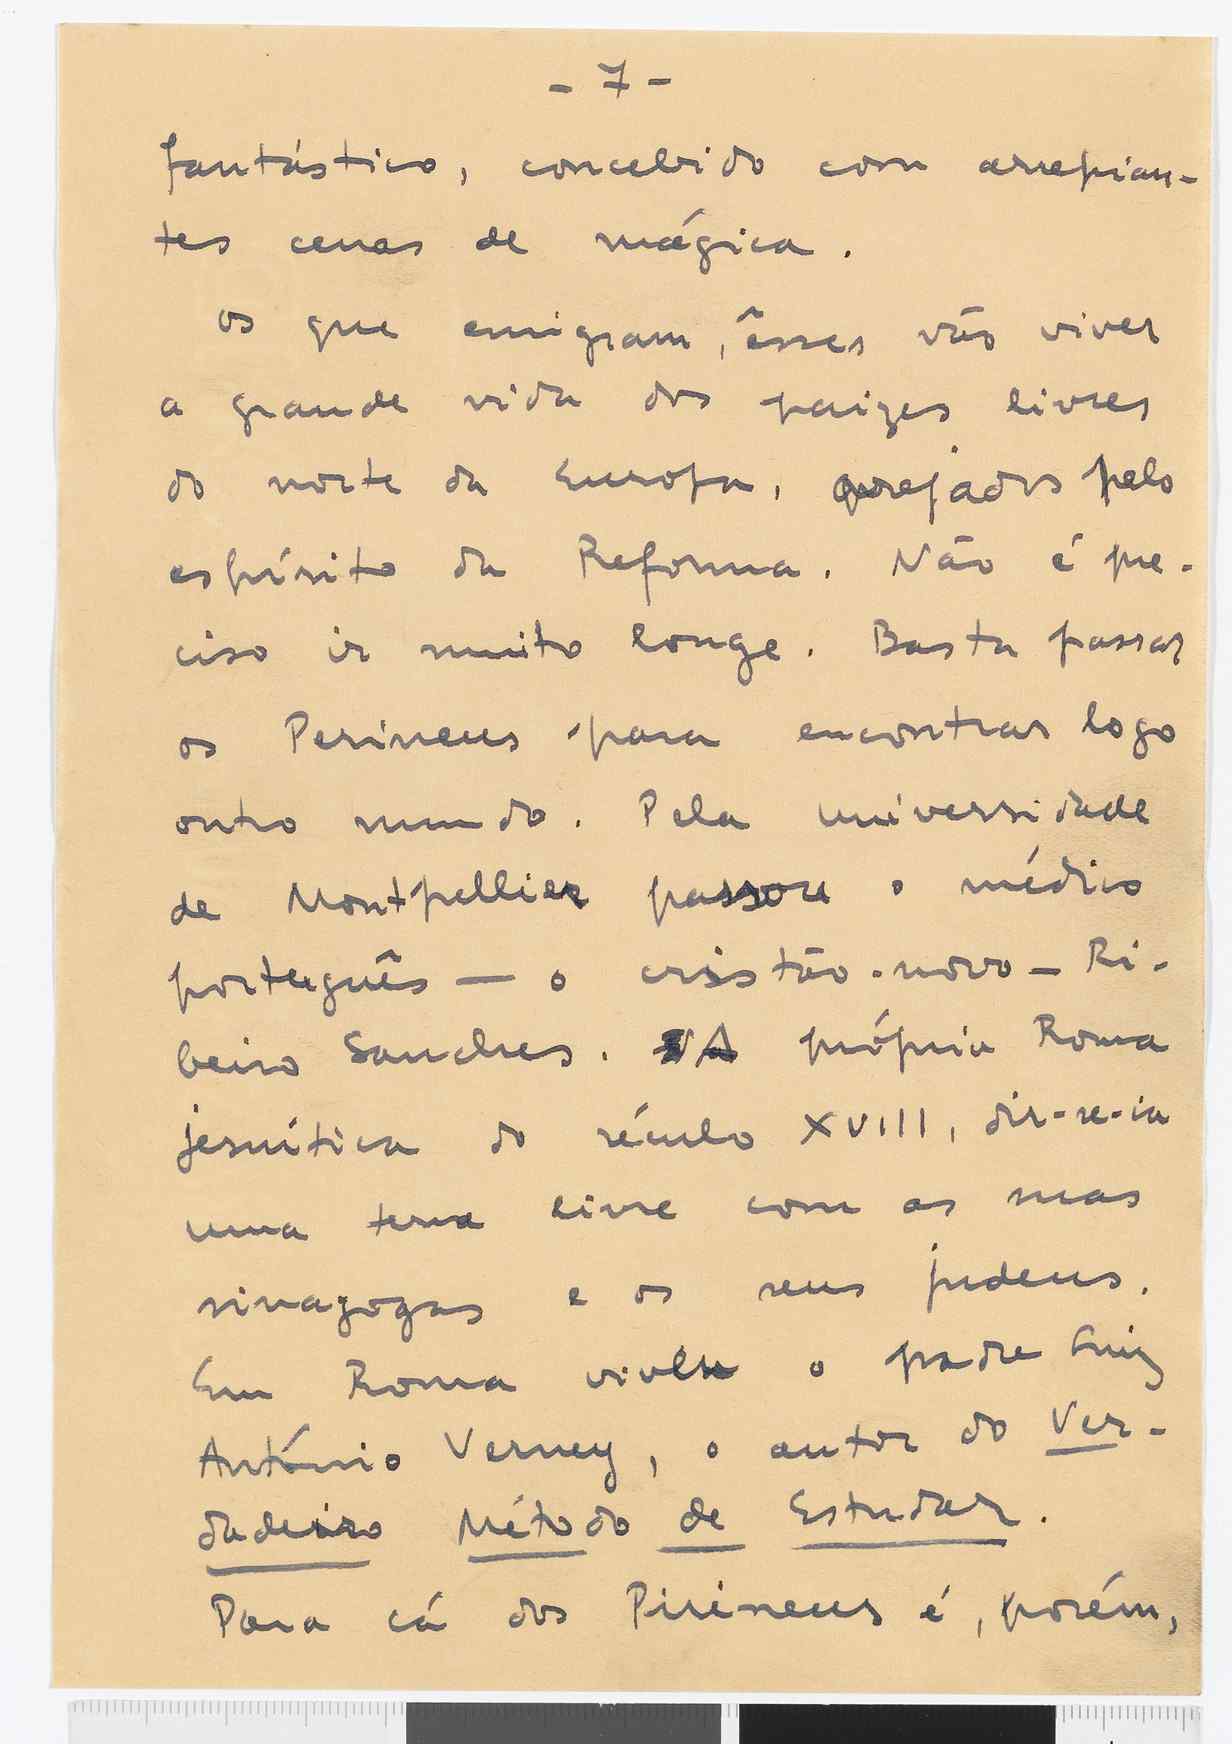 - 7 -
fantástico, concebido com arrepian-
tes cenas de mágica.
Os que emigram, êsses vão viver
a grande vida dos paizes livres
do norte da Europa, arejados pelo
espírito da Reforma. Não é pre-
ciso ir muito longe. Basta passar
os Perineus para encontrar logo
outro mundo. Pela universidade
de Montpellier passou o médico
português — o cristão-novo — Ri-
beiro Sanches. A própria Roma
jesuítica do século XVIII, dir-se-ia
uma terra livre com as suas
sinagogas e os seus judeus.
Em Roma viveu o padre Luiz
António Verney, o autor do Ver-
dadeiro Método de Estudar.
Para cá dos Pirineus é, porém,